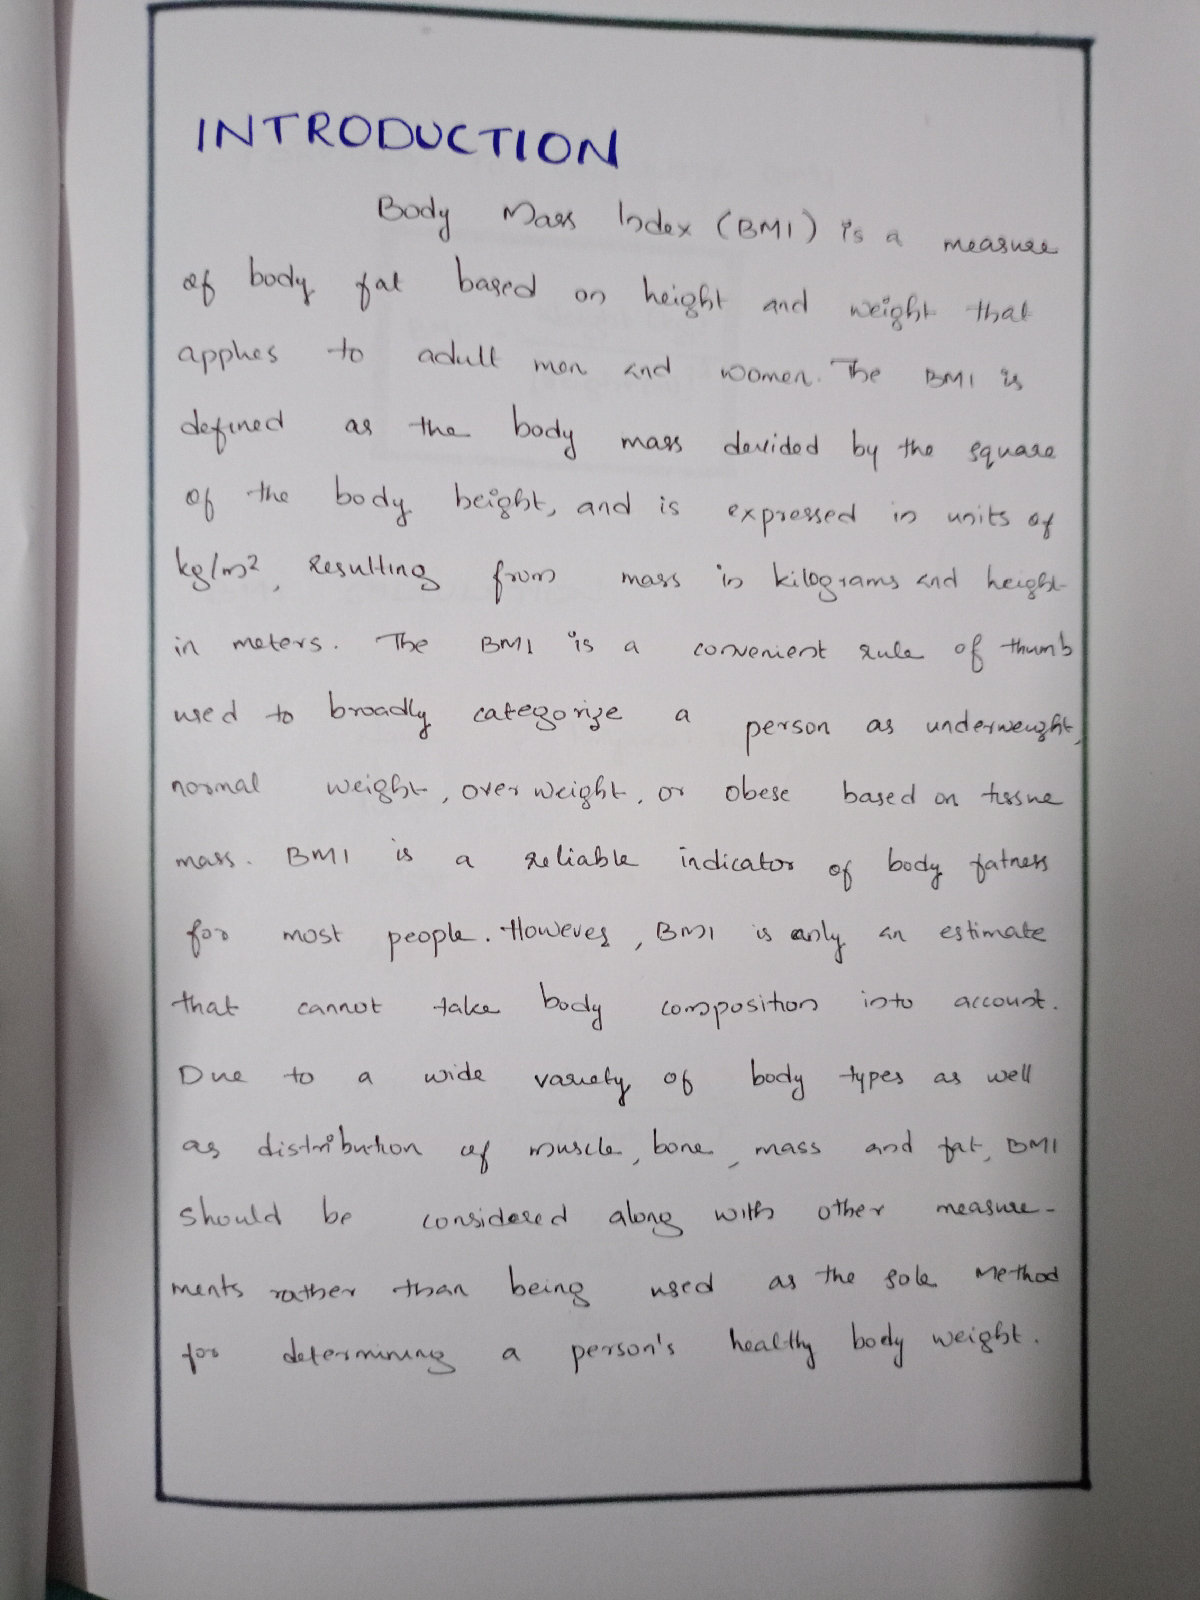 INTRODUCTION
Body Mass Index (BMI) is a measure
of body fat based on height and weight that
applies to adult men and women. The BMI is
defined as the body mass devided by the square
of the body height, and is expressed in units of
kg/m², resulting from mass in kilograms and height
in meters. The BMI is a convenient rule of thumb
used to broadly categorize a person as underweight,
normal weight, over weight, or obese based on tissue
mass. BMI is a reliable indicator of body fatness
for most people. However, BMI is only an estimate
that cannot take body composition into account.
Due to a wide variety of body types as well
as distribution of muscle, bone, mass and fat, BMI
should be considered along with other measure-
ments rather than being used as the sole method
for determining a person's healthy body weight.